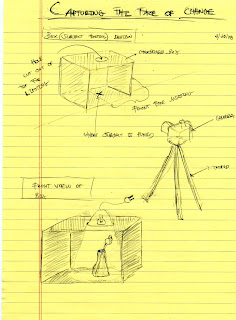 CAPTURING THE FACE OF CHANGE
BOX (SUBJECT POSITION) DESIGN
4/20/08
CARDBOARD BOX
HOLE
CUT OUT OF
TOP FOR
LIGHTING
FRONT SIDE
WHERE SUBJECT IS PLACED
CAMERA
TRIPOD
FRONT VIEW OF
BOX